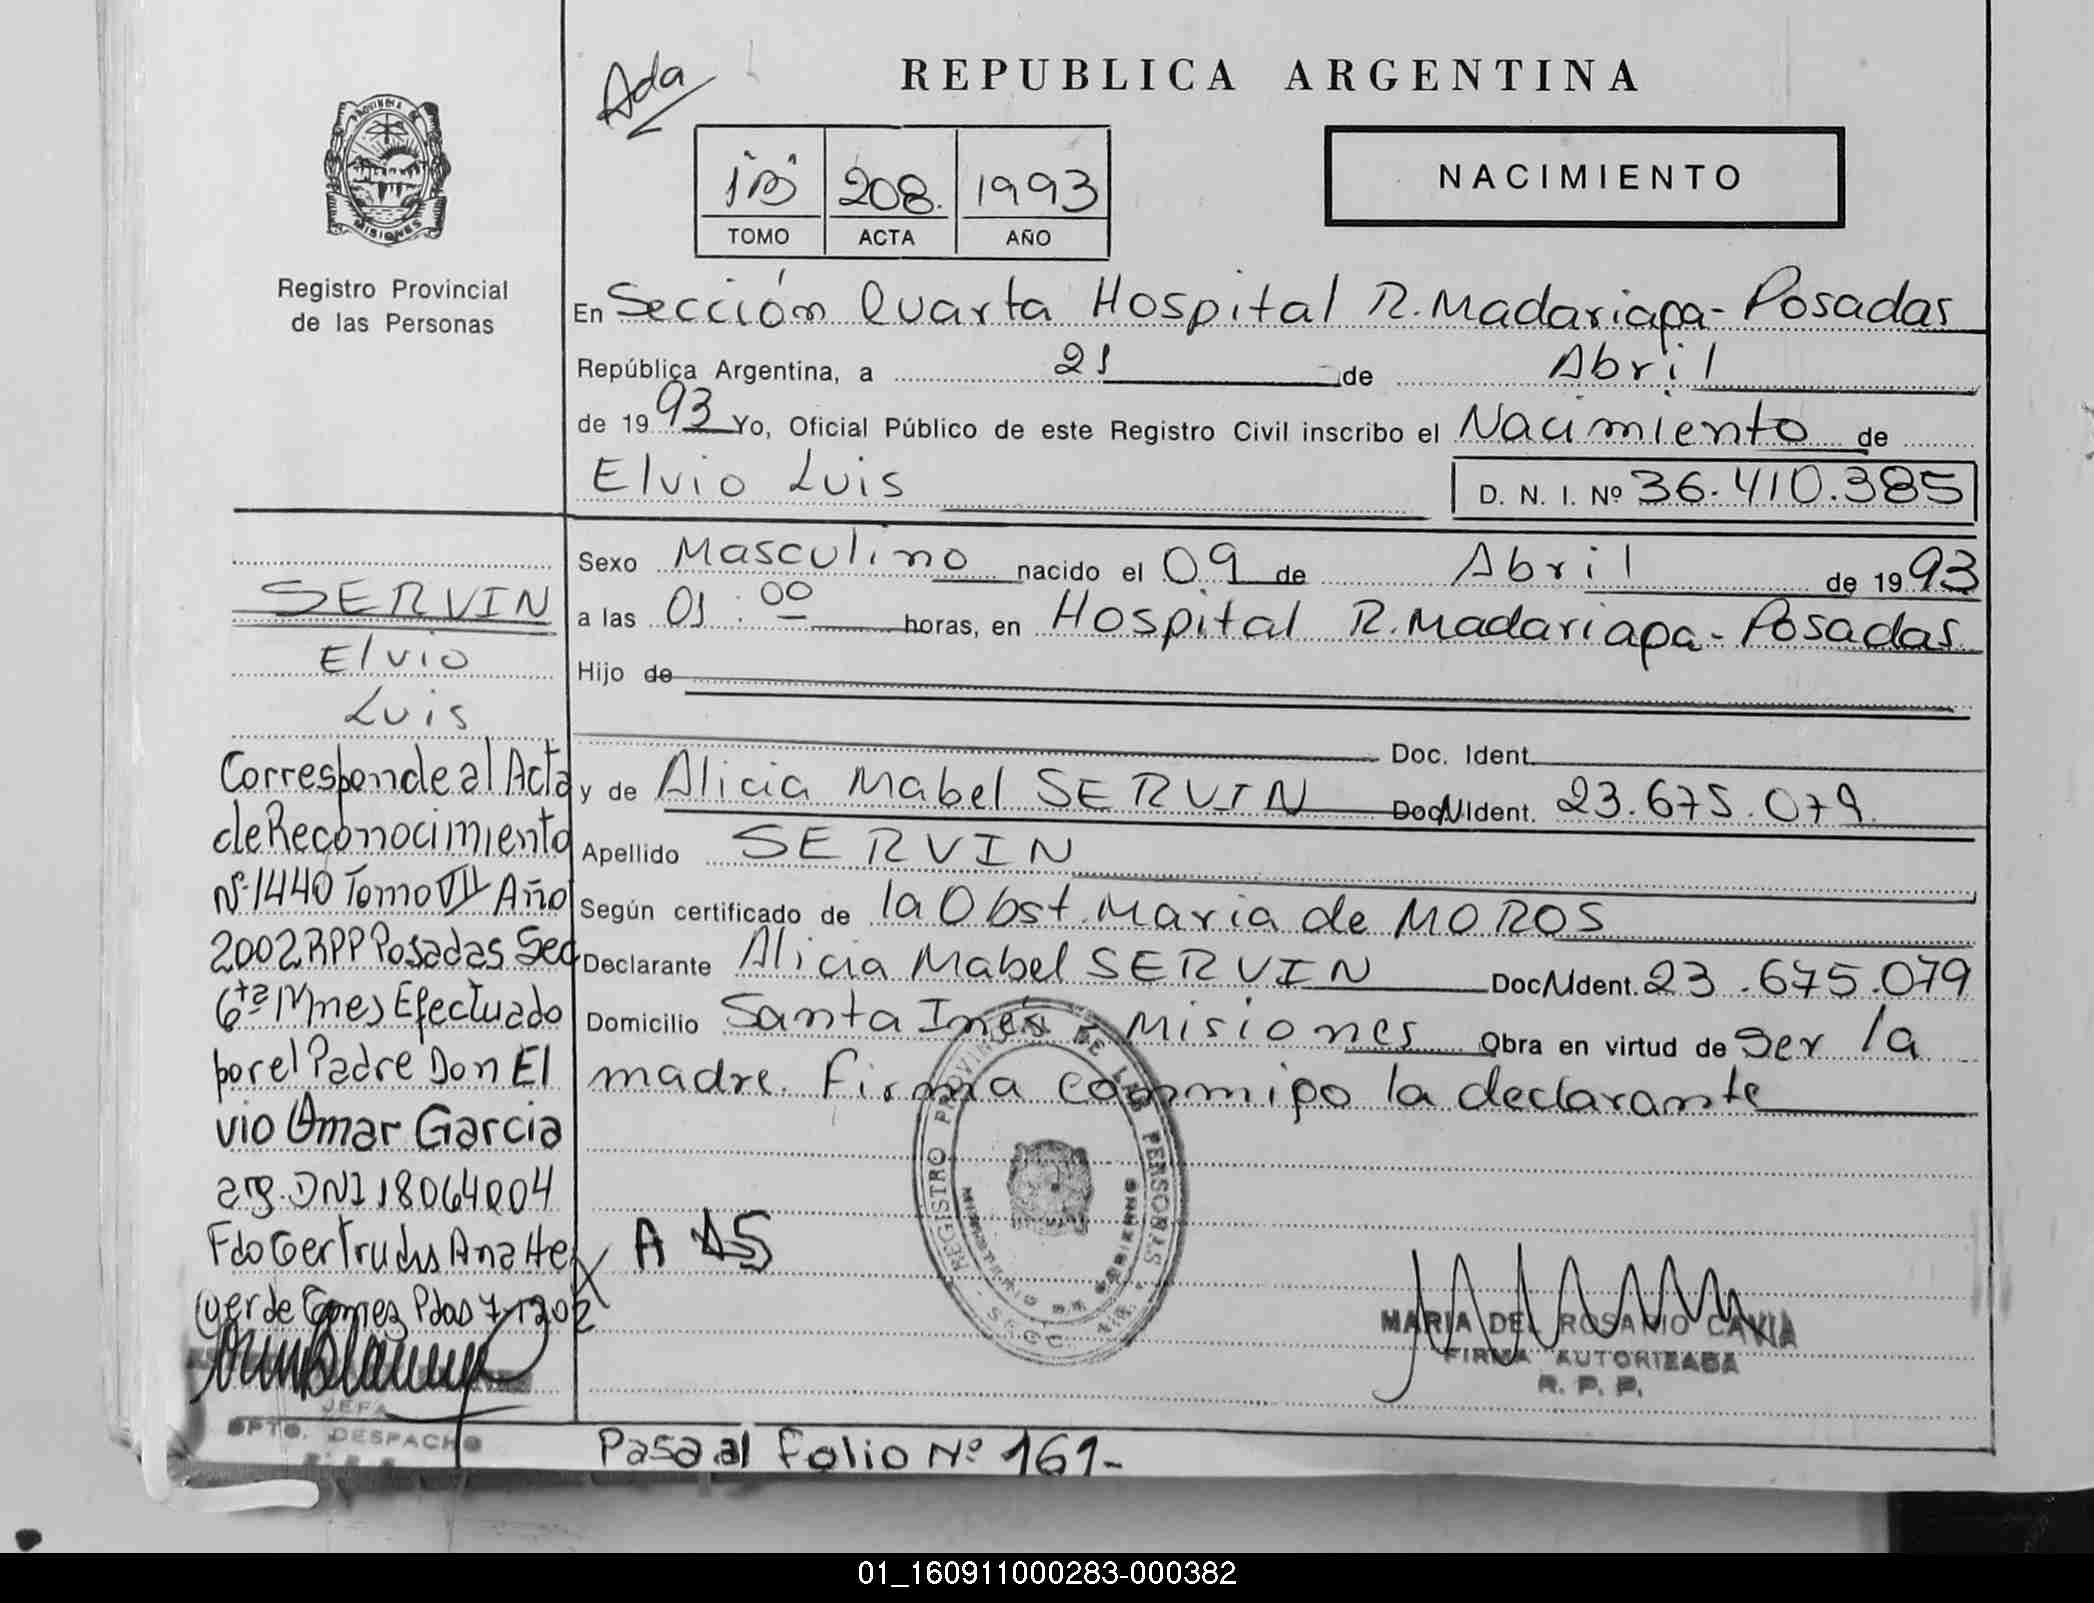 REPUBLICA ARGENTINA
Ada
208. 1993
TOMO ACTA AÑO
NACIMIENTO
PROVINCIA DE
MISIONES
Registro Provincial
de las Personas
En Sección Quarta Hospital R. Madariaga - Posadas
República Argentina, a 21 de Abril
de 1993 Yo, Oficial Público de este Registro Civil inscribo el Nacimiento de
Elvio Luis D. N. I. Nº 36.410.385
Sexo Masculino nacido el 09 de Abril de 1993
a las 01:00 horas, en Hospital R. Madariaga - Posadas
Hijo de
Doc. Ident.
y de Alicia Mabel SERVIN Doc.N.Ident. 23.675.079
Apellido SERVIN
Según certificado de la Obst. Maria de MOROS
Declarante Alicia Mabel SERVIN Doc.N.Ident. 23.675.079
Domicilio Santa Inés - Misiones Obra en virtud de ser la
madre. Firma conmigo la declarante
SERVIN
Elvio
Luis
Corresponde al Acta
de Reconocimiento
Nº 1440 Tomo VII Año
2002 RPP Posadas Sec
6ta Mnes Efectuado
por el Padre Don El
vio Omar Garcia
arg. DNI 18064004
Fdo Gertrudis Ana
de Gomez Pdas
JEFA
DPTO. DESPACHO
A 15
REGISTRO PROVINCIAL DE LAS PERSONAS
MARIA DEL ROSARIO CAVIA
FIRMA AUTORIZADA
R. P. P.
Pasa al Folio Nº 161-
01_160911000283-000382